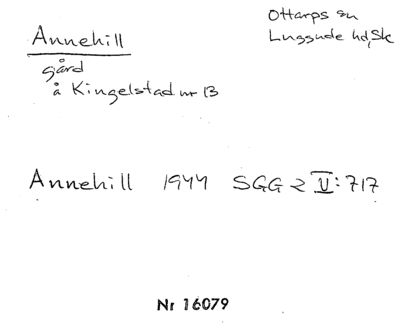 Annehill
gård
å Kingelstad nr 13
Ottarps sn
Luggude hd, Sk
Annehill 1944 SGG 2 V: 717
Nr 16079